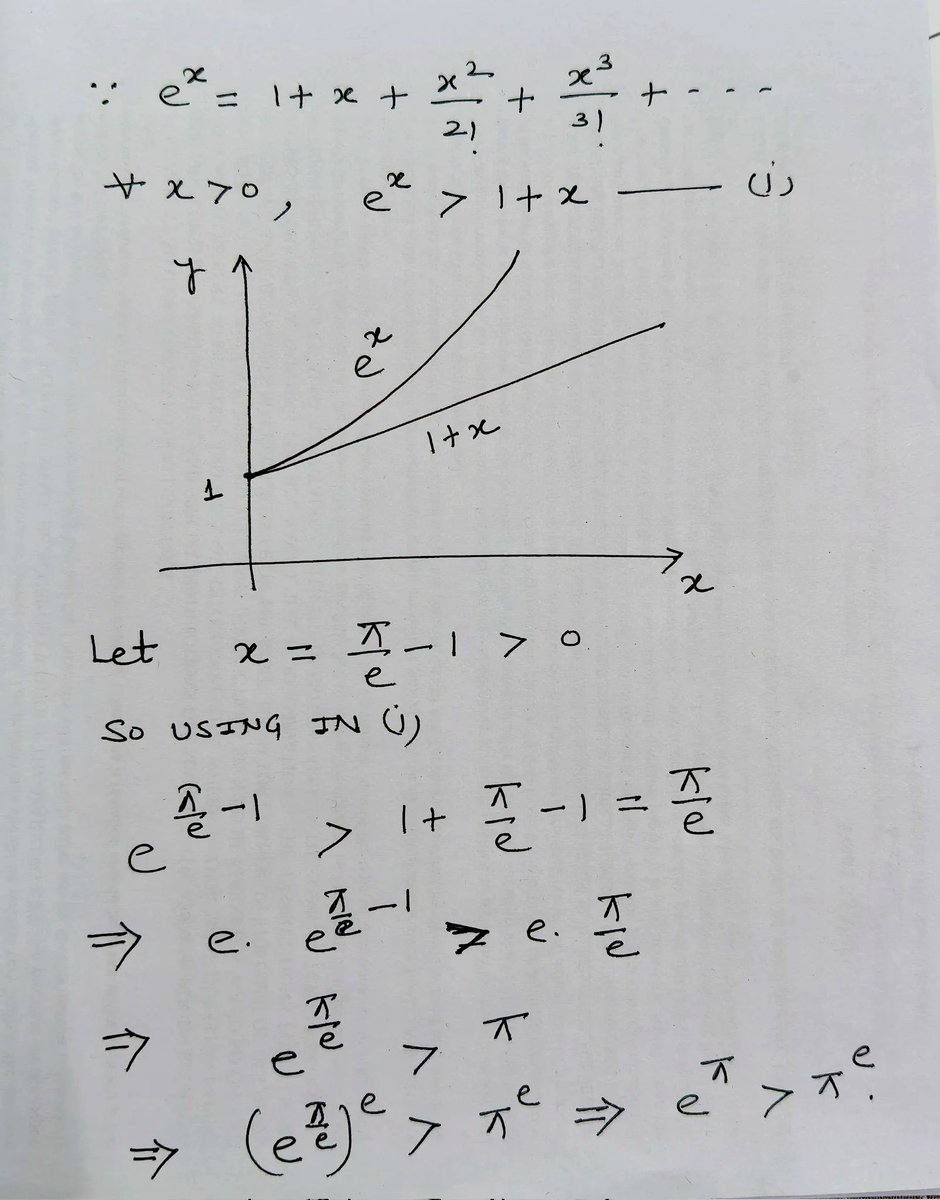 ∵ e^x = 1 + x + x²/2! + x³/3! + - - -
∀ x > 0, e^x > 1 + x —— (i)
y
e^x
1+x
1
x
Let x = π/e - 1 > 0
SO USING IN (i)
e^(π/e - 1) > 1 + π/e - 1 = π/e
⇒ e. e^(π/e - 1) > e. π/e
⇒ e^(π/e) > π
⇒ (e^(π/e))^e > π^e ⇒ e^π > π^e.